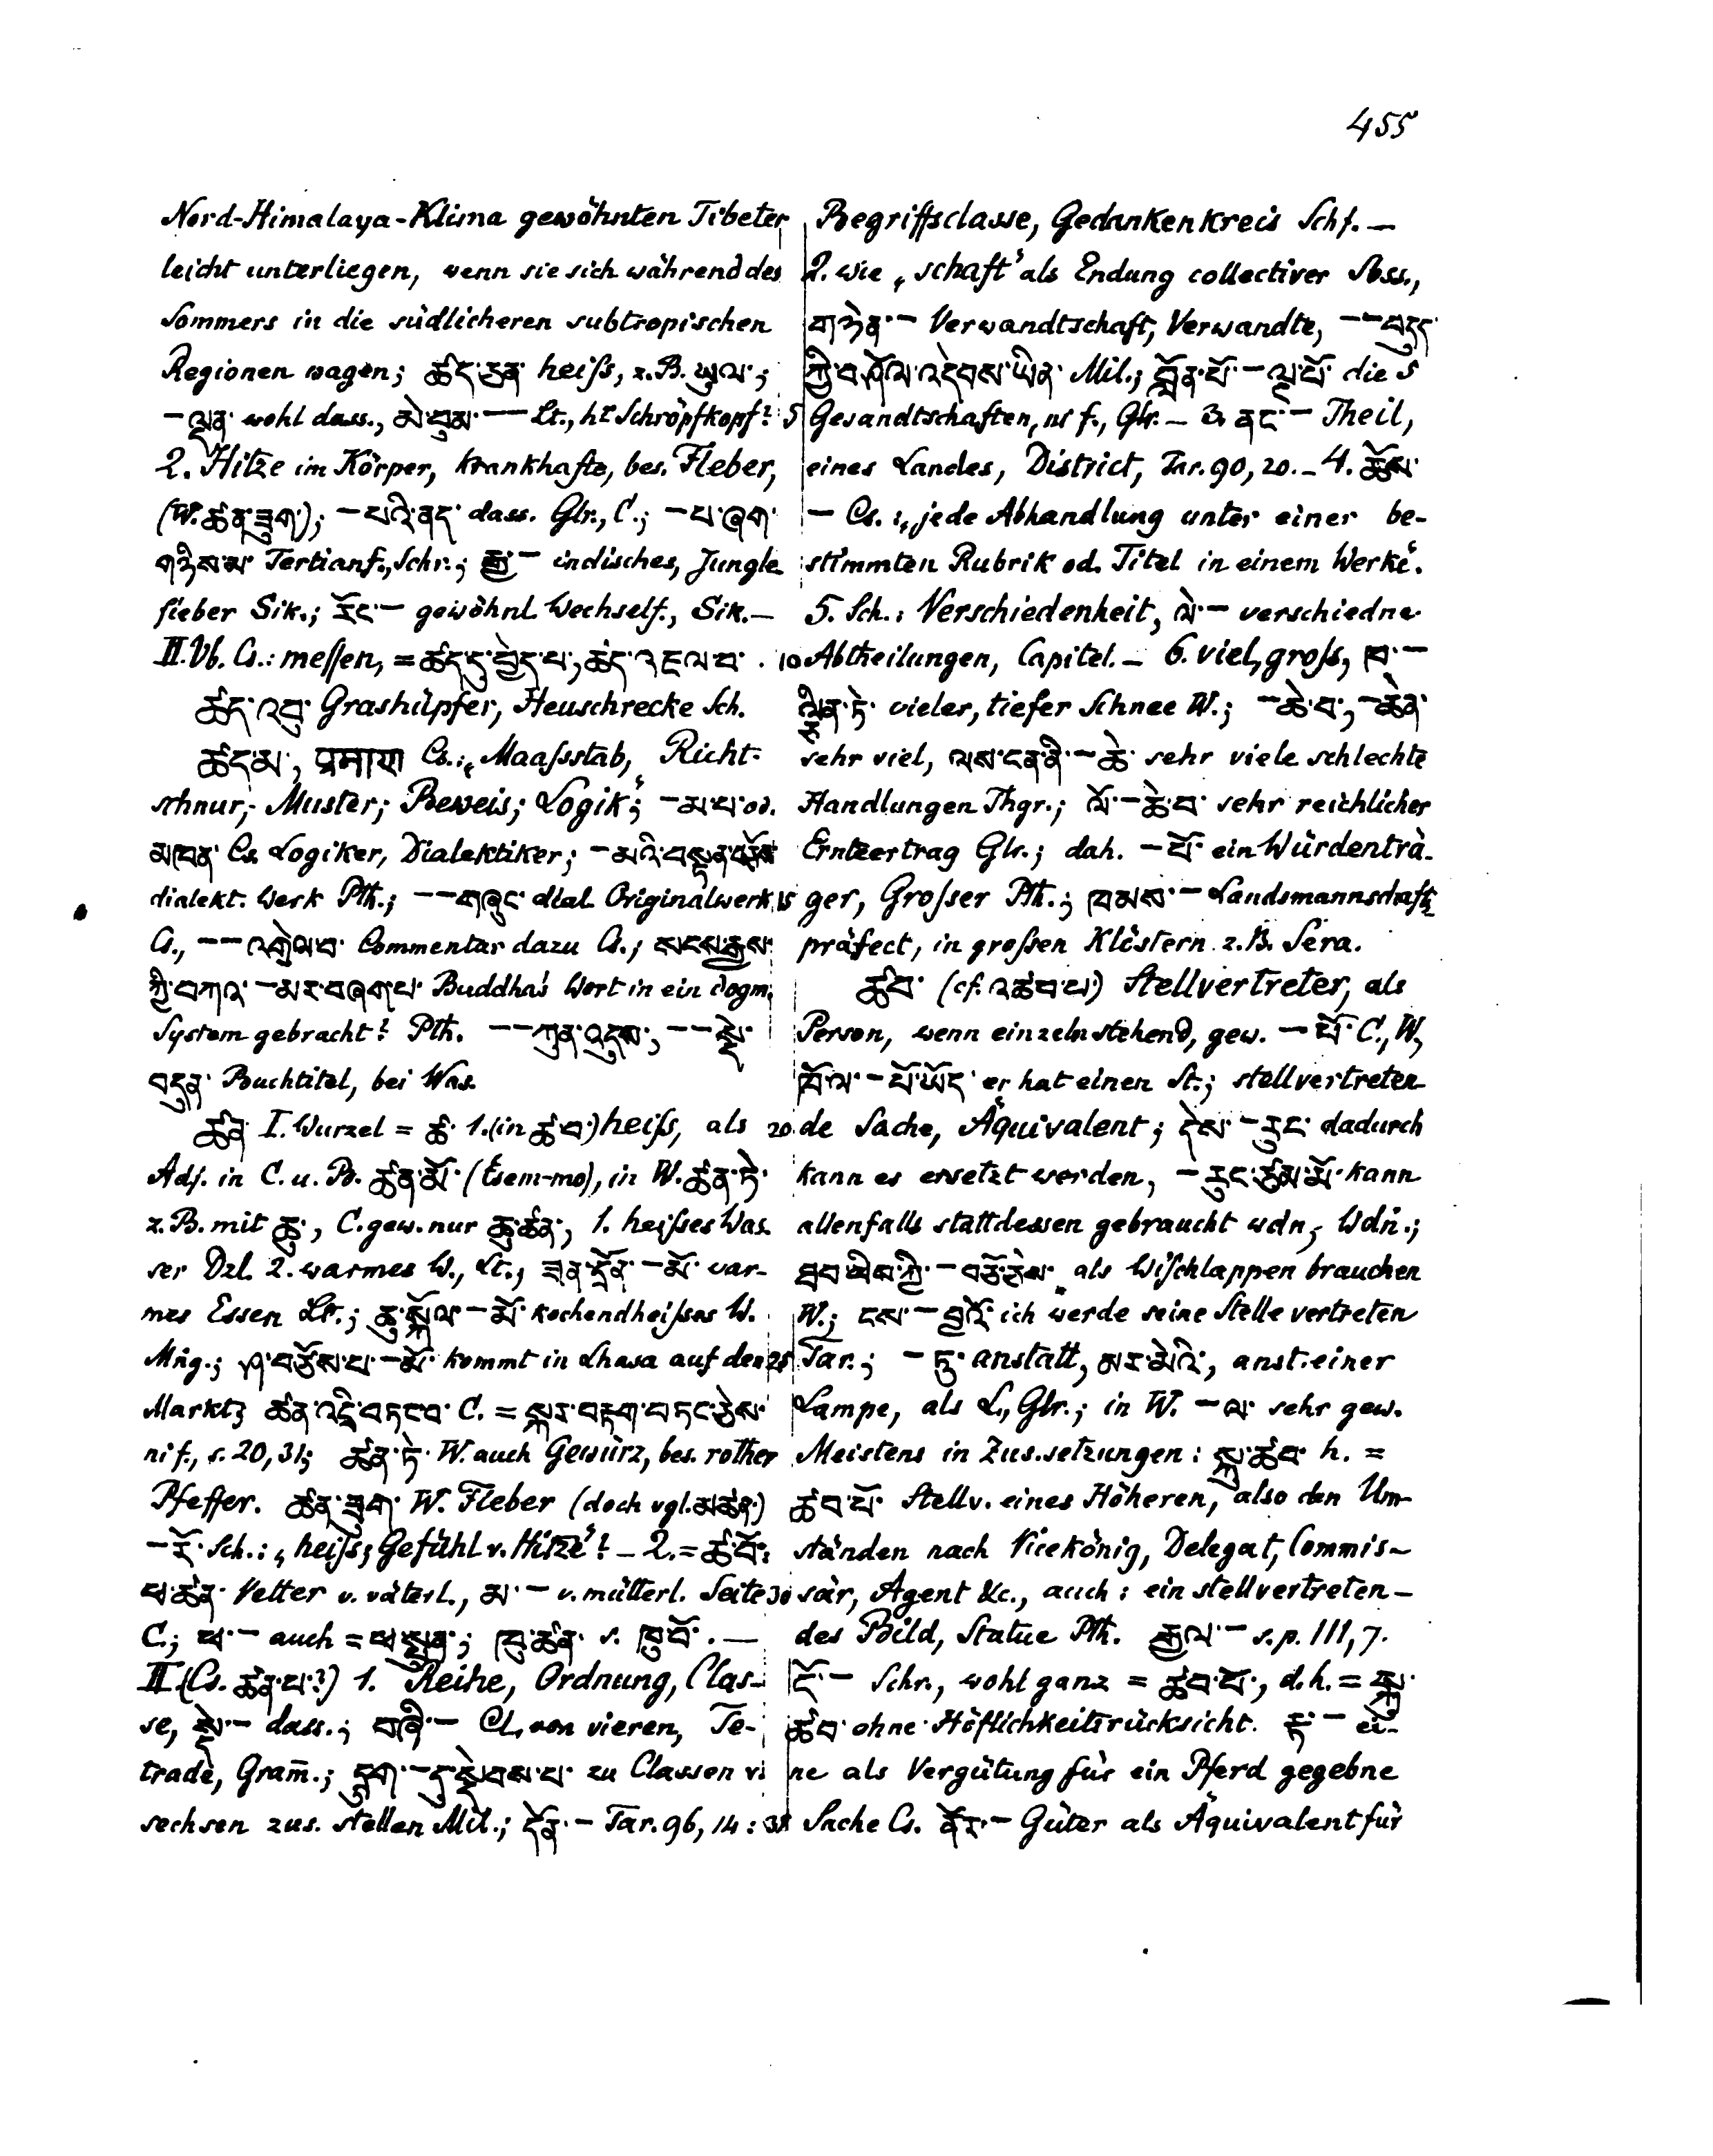 455
Nord-Himalaya-Klima gewöhnten Tibeter
leicht unterliegen, wenn sie sich während des
Sommers in die südlicheren subtropischen
Regionen wagen; ཚད་ཅན་ heiß, z.B. ཡུལ་;
–ལྡན་ wohl dass., མེ་བུམ་ –– Lt., hᵗ Schröpfkopf? 5
2. Hitze im Körper, krankhafte, bes. Fieber,
(W. ཚན་ཟུག་); –པའི་ནད་ dass. Glr., C.; –པ་ཞག་
གཉིས་མ་ Tertianf., Schr.; རྒྱ་– indisches, Jungle
fieber Sik.; རོང་– gewöhnl. Wechself., Sik. –
II. Vb. Cs.: meßen, = ཚད་དུ་བྱེད་པ་, ཚད་འཇལ་བ་. 10
ཚད་འབུ་ Grashüpfer, Heuschrecke Sch.
ཚད་མ་, Cs.: „Maaßstab, Richt-
schnur; Muster; Beweis; Logik“; –མ་པ་ od.
མཁན་ Cs. Logiker, Dialektiker; –མའི་བསྟན་བཅོས་
dialekt. Werk Pth.; ––གཞུང་ dial. Originalwerk, 15
Cs., ––འགྲེལ་བ་ Commentar dazu Cs.; སངས་རྒྱས་
ཀྱི་བཀའ་ –མར་བཞག་པ་ Buddha's Wort in ein dogm.
System gebracht? Pth. ––ཀུན་འདུས་, ––སྡེ་
བདུན་ Buchtitel, bei Was.
ཚན་ I. Wurzel = ཚ་ 1. (in ཚ་བ་) heiß, als 20
Adj. in C. u. B. ཚན་མོ་ (tsem-mo), in W. ཚན་ཏེ་
z.B. mit ཆུ་, C. gew. nur ཆུ་ཚན་, 1. heißes Was-
ser Dzl. 2. warmes W., Lt., ཟན་དྲོན་ –མོ་ war-
mes Essen Lt.; ཆུ་སྐོལ་ –མོ་ kochendheißes W.
Mng.; ཤ་བཙོས་པ་ –མོ་ kommt in Lhasa auf den 25
Markt; ཚན་འདྲི་བཏང་བ་ C. = སྐར་བརྟག་བཏང་ཅེས་
ni f., s. 20, 31; ཚན་ཏེ་ W. auch Gewürz, bes. rother
Pfeffer. ཚན་ཟུག་ W. Fieber (doch vgl. མཚན་)
–རོ་ Sch.: „heiß; Gefühl v. Hitze“? – 2. = ཚ་བོ་:
ཕ་ཚན་ Vetter v. väterl., མ་– v. mütterl. Seite 30
C.; ཕ་– auch = ཕ་སྤུན་; ཁུ་ཚན་ s. ཁུ་བོ་. –
II. (Cs. ཚན་པ་?) 1. Reihe, Ordnung, Clas-
se, སྡེ་– dass.; བཞི་– Cl. von vieren, Te-
trade, Gram̅.; དྲུག་–དུ་སྡེབས་པ་ zu Classen v.
sechsen zus. stellen Mil.; དོན་– Tar. 96, 14: 35
Begriffsclasse, Gedankenkreis Schf. –
2. wie „schaft“ als Endung collectiver Sbss.,
གཉེན་– Verwandtschaft, Verwandte, ––བདུད་
ཀྱི་བཤོལ་འདེབས་ཡིན་ Mil.; བློན་པོ་–ལྔ་པོ་ die 5
Gesandtschaften, ni f., Glr. – 3. ནང་– Theil,
eines Landes, District, Tar. 90, 20. – 4. ཆོས་
– Cs.: „jede Abhandlung unter einer be-
stimmten Rubrik od. Titel in einem Werke“.
5. Sch.: Verschiedenheit, ལེ་– verschiedne
Abtheilungen, Capitel. – 6. viel, groß, ཁ་–
vieler, tiefer Schnee W.; –ཆེ་བ་, –ཆེན་
sehr viel, ལས་ངན་ནི་–ཆེ་ sehr viele schlechte
Handlungen Thgr.; ལོ་–ཆེ་བ་ sehr reichlicher
Ernteertrag Glr.; dah. –པོ་ ein Würdenträ-
ger, Großer Pth.; ཁམས་– Landsmannschafts-
präfect, in großen Klöstern z.B. Sera.
ཚབ་ (cf. འཚབ་པ་) Stellvertreter, als
Person, wenn einzeln stehend, gew. –པོ་ C., W.,
ཁོ་ལ་–པོ་ཡོད་ er hat einen St.; stellvertreten-
de Sache, Äquivalent; དེས་–རུང་ dadurch
kann es ersetzt werden, –རུང་ཙམ་མོ་ kann
allenfalls stattdessen gebraucht wdn, Wdn.;
als Wischlappen brauchen
W.; ངས་–བྱའོ་ ich werde seine Stelle vertreten
Tar.; –ཏུ་ anstatt, མར་མེའི་, anst. einer
Lampe, als L., Glr.; in W. –ལ་ sehr gew.
Meistens in Zus.setzungen: སྐུ་ཚབ་ h. =
ཚབ་པོ་ Stellv. eines Höheren, also den Um-
ständen nach Vicekönig, Delegat, Commis-
sär, Agent &c., auch: ein stellvertreten-
des Bild, Statue Pth. རྒྱལ་– s. p. 111, 7.
ངོ་– Schr., wohl ganz = ཚབ་པོ་, d.h. = སྐུ་
ཚབ་ ohne Höflichkeitsrücksicht. རྟ་– ei-
ne als Vergütung für ein Pferd gegebne
Sache Cs. ནོར་– Güter als Äquivalent für